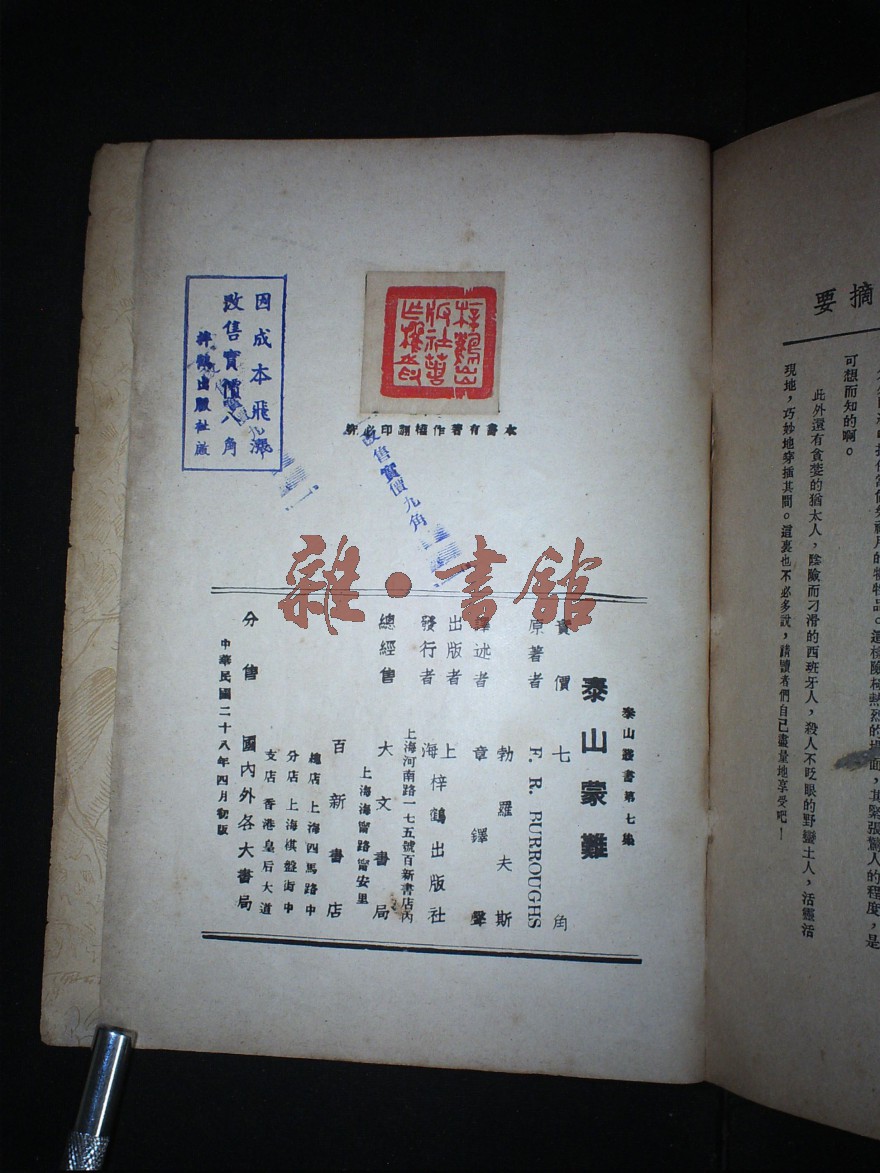 摘要
可想而知的啊。
此外還有貪婪的猶太人，陰險而刁滑的西班牙人，殺人不眨眼的野蠻土人，活靈活
現地，巧妙地穿插其間。這裏也不必多說，請讀者們自己盡量地享受吧！
梓鶴出
版社著
作權章
本書有著作權翻印必究
因成本飛漲
改售實價八角
梓鶴出版社啟
改售實價九角
雜·書館
泰山叢書第七集
泰山蒙難
實價七角
原著者 勃羅夫斯
F. R. BURROUGHS
譯述者 章鐸聲
出版者 上海梓鶴出版社
發行者
上海河南路一七五號百新書店內
總經售 大文書局
上海海甯路甯安里
百新書店
總店 上海四馬路中
分店 上海棋盤街中
支店 香港皇后大道
分售 國內外各大書局
中華民國二十八年四月初版